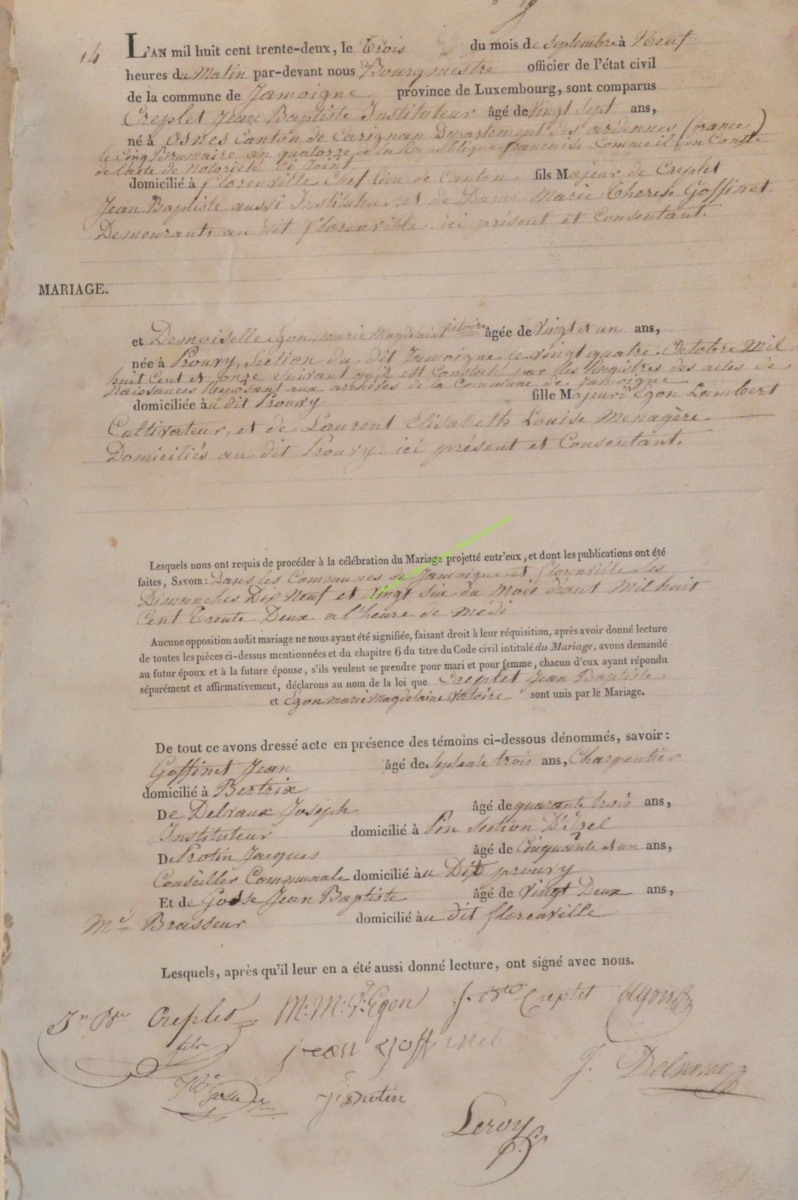 14
L'AN mil huit cent trente-deux, le Trois du mois de septembre à Neuf
heures du Matin par-devant nous Bourgmestre officier de l'état civil
de la commune de Jamoigne province de Luxembourg, sont comparus
Creplet Jean Baptiste Instituteur âgé de Vingt Sept ans,
né à Osnes Canton de Carignan Département des ardennes (france)
le Cinq Brumaire an quatorze de la République française Comme il en Conste
de l'acte de Notoriété Ci Joint
domicilié à florenville Chef lieu de Canton fils Majeur de Creplet
Jean Baptiste aussi Instituteur et de Dame Marie Therese Goffinet
Demeurants au dit florenville ici présent et Consentant.
MARIAGE.
et Demoiselle Egon Marie Magdelaine Victoire âgée de Vingt et un ans,
née à Prouvy, Section du dit Jamoigne, le vingt quatre Octobre Mil
huit Cent et onze suivant qu'il est Constaté par les Registres des actes de
Naissances reposant aux archives de la Commune de Jamoigne
domiciliée au dit Prouvy fille Majeure d'Egon Lambert
Cultivateur, et de Laurent Elisabeth Louise Menagère
Domiciliés au dit Prouvy ici présent et Consentant.
Lesquels nous ont requis de procéder à la célébration du Mariage projetté entr'eux, et dont les publications ont été
faites, SAVOIR: Dans les Communes de Jamoigne et florenville les
Dimanches Dix Neuf et Vingt Six du Mois d'aout Mil huit
Cent Trente Deux a l'heure de Medi
Aucune opposition audit mariage ne nous ayant été signifiée, faisant droit à leur réquisition, après avoir donné lecture
de toutes les pièces ci-dessus mentionnées et du chapitre 6 du titre du Code civil intitulé du Mariage, avons demandé
au futur époux et à la future épouse, s'ils veulent se prendre pour mari et pour femme, chacun d'eux ayant répondu
séparément et affirmativement, déclarons au nom de la loi que Creplet Jean Baptiste
et Egon marie Magdelaine Victoire sont unis par le Mariage.
De tout ce avons dressé acte en présence des témoins ci-dessous dénommés, savoir:
Goffinet Jean âgé de Septante trois ans, Charpentier
domicilié à Bertrix
De Delvaux Joseph âgé de quarante trois ans,
Instituteur domicilié à Pin Section D'Izel
De Protin Jacques âgé de Cinquante et un ans,
Conseiller Communale domicilié au Dit prouvy
Et de Gosse Jean Baptiste âgé de Vingt Deux ans,
Md Brasseur domicilié au dit florenville
Lesquels, après qu'il leur en a été aussi donné lecture, ont signé avec nous.
Jn Bte Creplet M. M. V. Egon J. Bte Creplet Egon
fils Jean Goffinet
J. Delvaux
J. Protin
Leroy